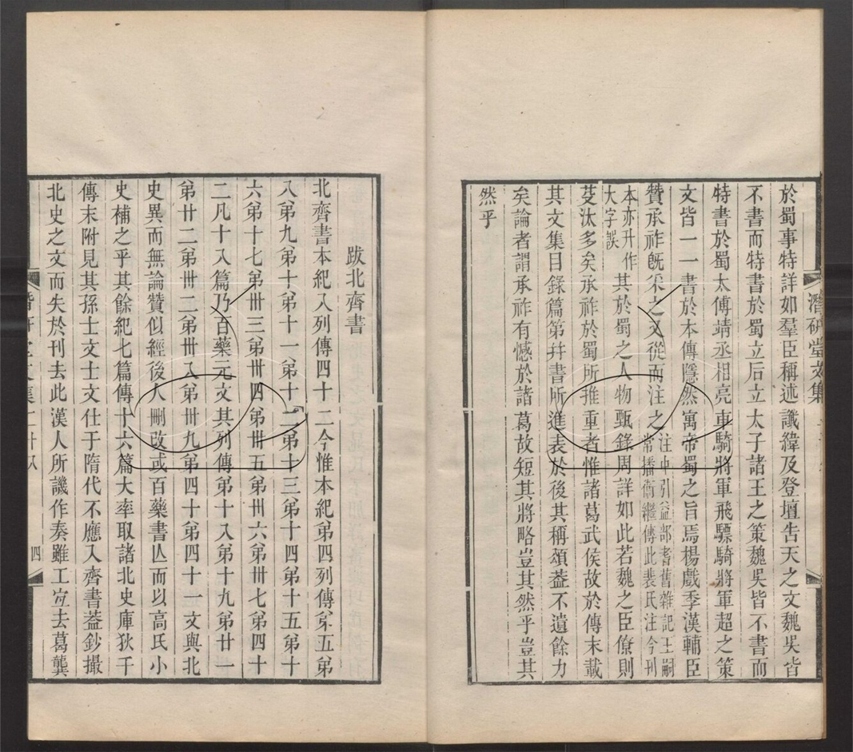 於蜀事特詳如羣臣稱述讖緯及登壇告天之文魏吳皆
不書而特書於蜀立后立太子諸王之策魏吳皆不書而
特書於蜀太傅靖丞相亮車騎將軍飛驃騎將軍超之策
文皆一一書於本傳隱然寓帝蜀之旨焉楊戲季漢輔臣
贊承祚旣采之文從而注之注中引益部耆舊雜記王嗣
常播衛繼傳此裴氏注今刊
本亦升作
大字誤其於蜀之人物甄錄周詳如此若魏之臣僚則
芟汰多矣承祚於蜀所推重者惟諸葛武侯故於傳末載
其文集目錄篇第幷書所進表於後其稱頌葢不遺餘力
矣論者謂承祚有憾於諸葛故短其將略豈其然乎豈其
然乎
跋北齊書
北齊書本紀八列傳四十二今惟本紀弟四列傳弟五弟
八弟九弟十弟十一弟十二弟十三弟十四弟十五弟十
六弟十七弟卅三弟卅四弟卅五弟卅六弟卅七弟四十
二凡十八篇乃百藥元文其列傳弟十八弟十九弟廿一
弟廿二弟卅二弟卅八弟卅九弟四十弟四十一文與北
史異而無論贊似經後人刪改或百藥書亾而以高氏小
史補之乎其餘紀七篇傳十六篇大率取諸北史庫狄干
傳末附見其孫士文士文仕于隋代不應入齊書葢鈔撮
北史之文而失於刊去此漢人所譏作奏雖工宜去葛龔
四